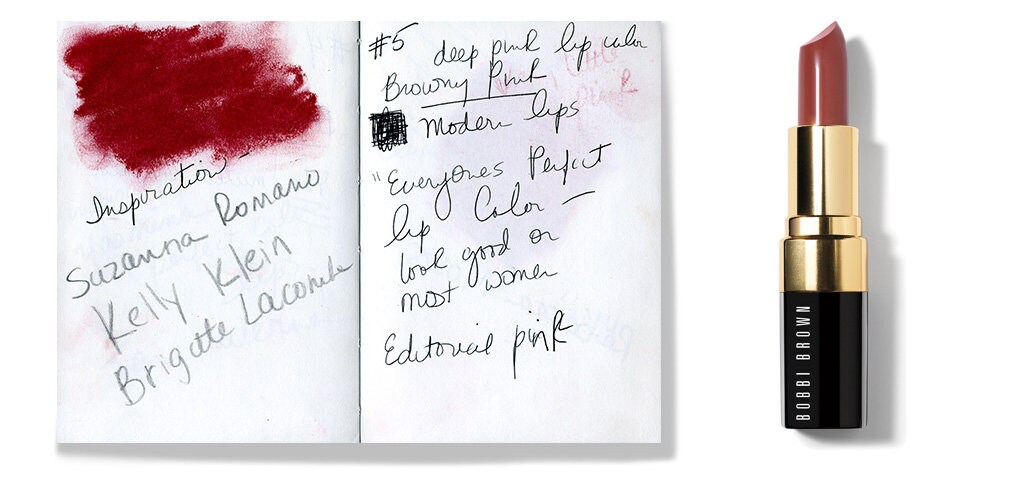 Inspiration -
Suzanna Romano
Kelly Klein
Brigatte Lacombe
#5 deep pink lip color
Browny Pink
Modern lips
"Everyones Perfect
lip Color —
look good on
most women
Editorial pink
BOBBI BROWN